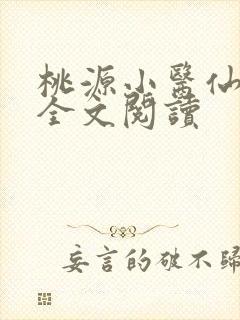 桃源小醫仙
全文閱讀
妄言的破不歸